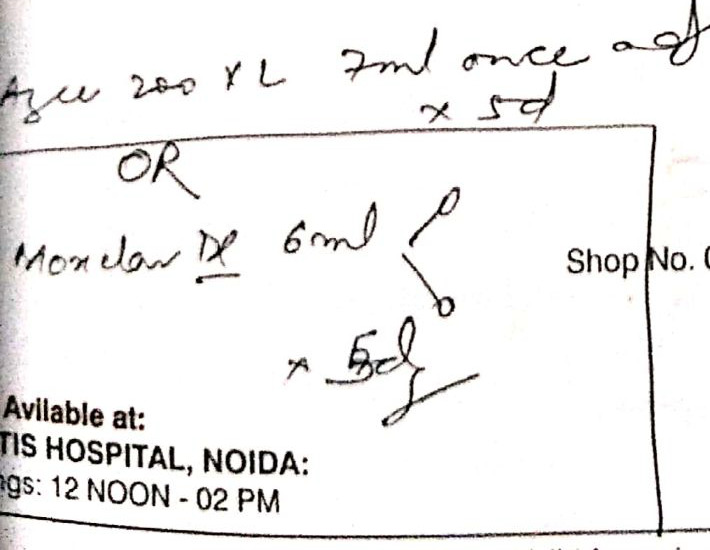 Azee 200 XL 7ml once a day
x 5d
OR
Moxclav DS 6ml
x 5d
Shop No.
Avilable at:
TIS HOSPITAL, NOIDA:
ngs: 12 NOON - 02 PM